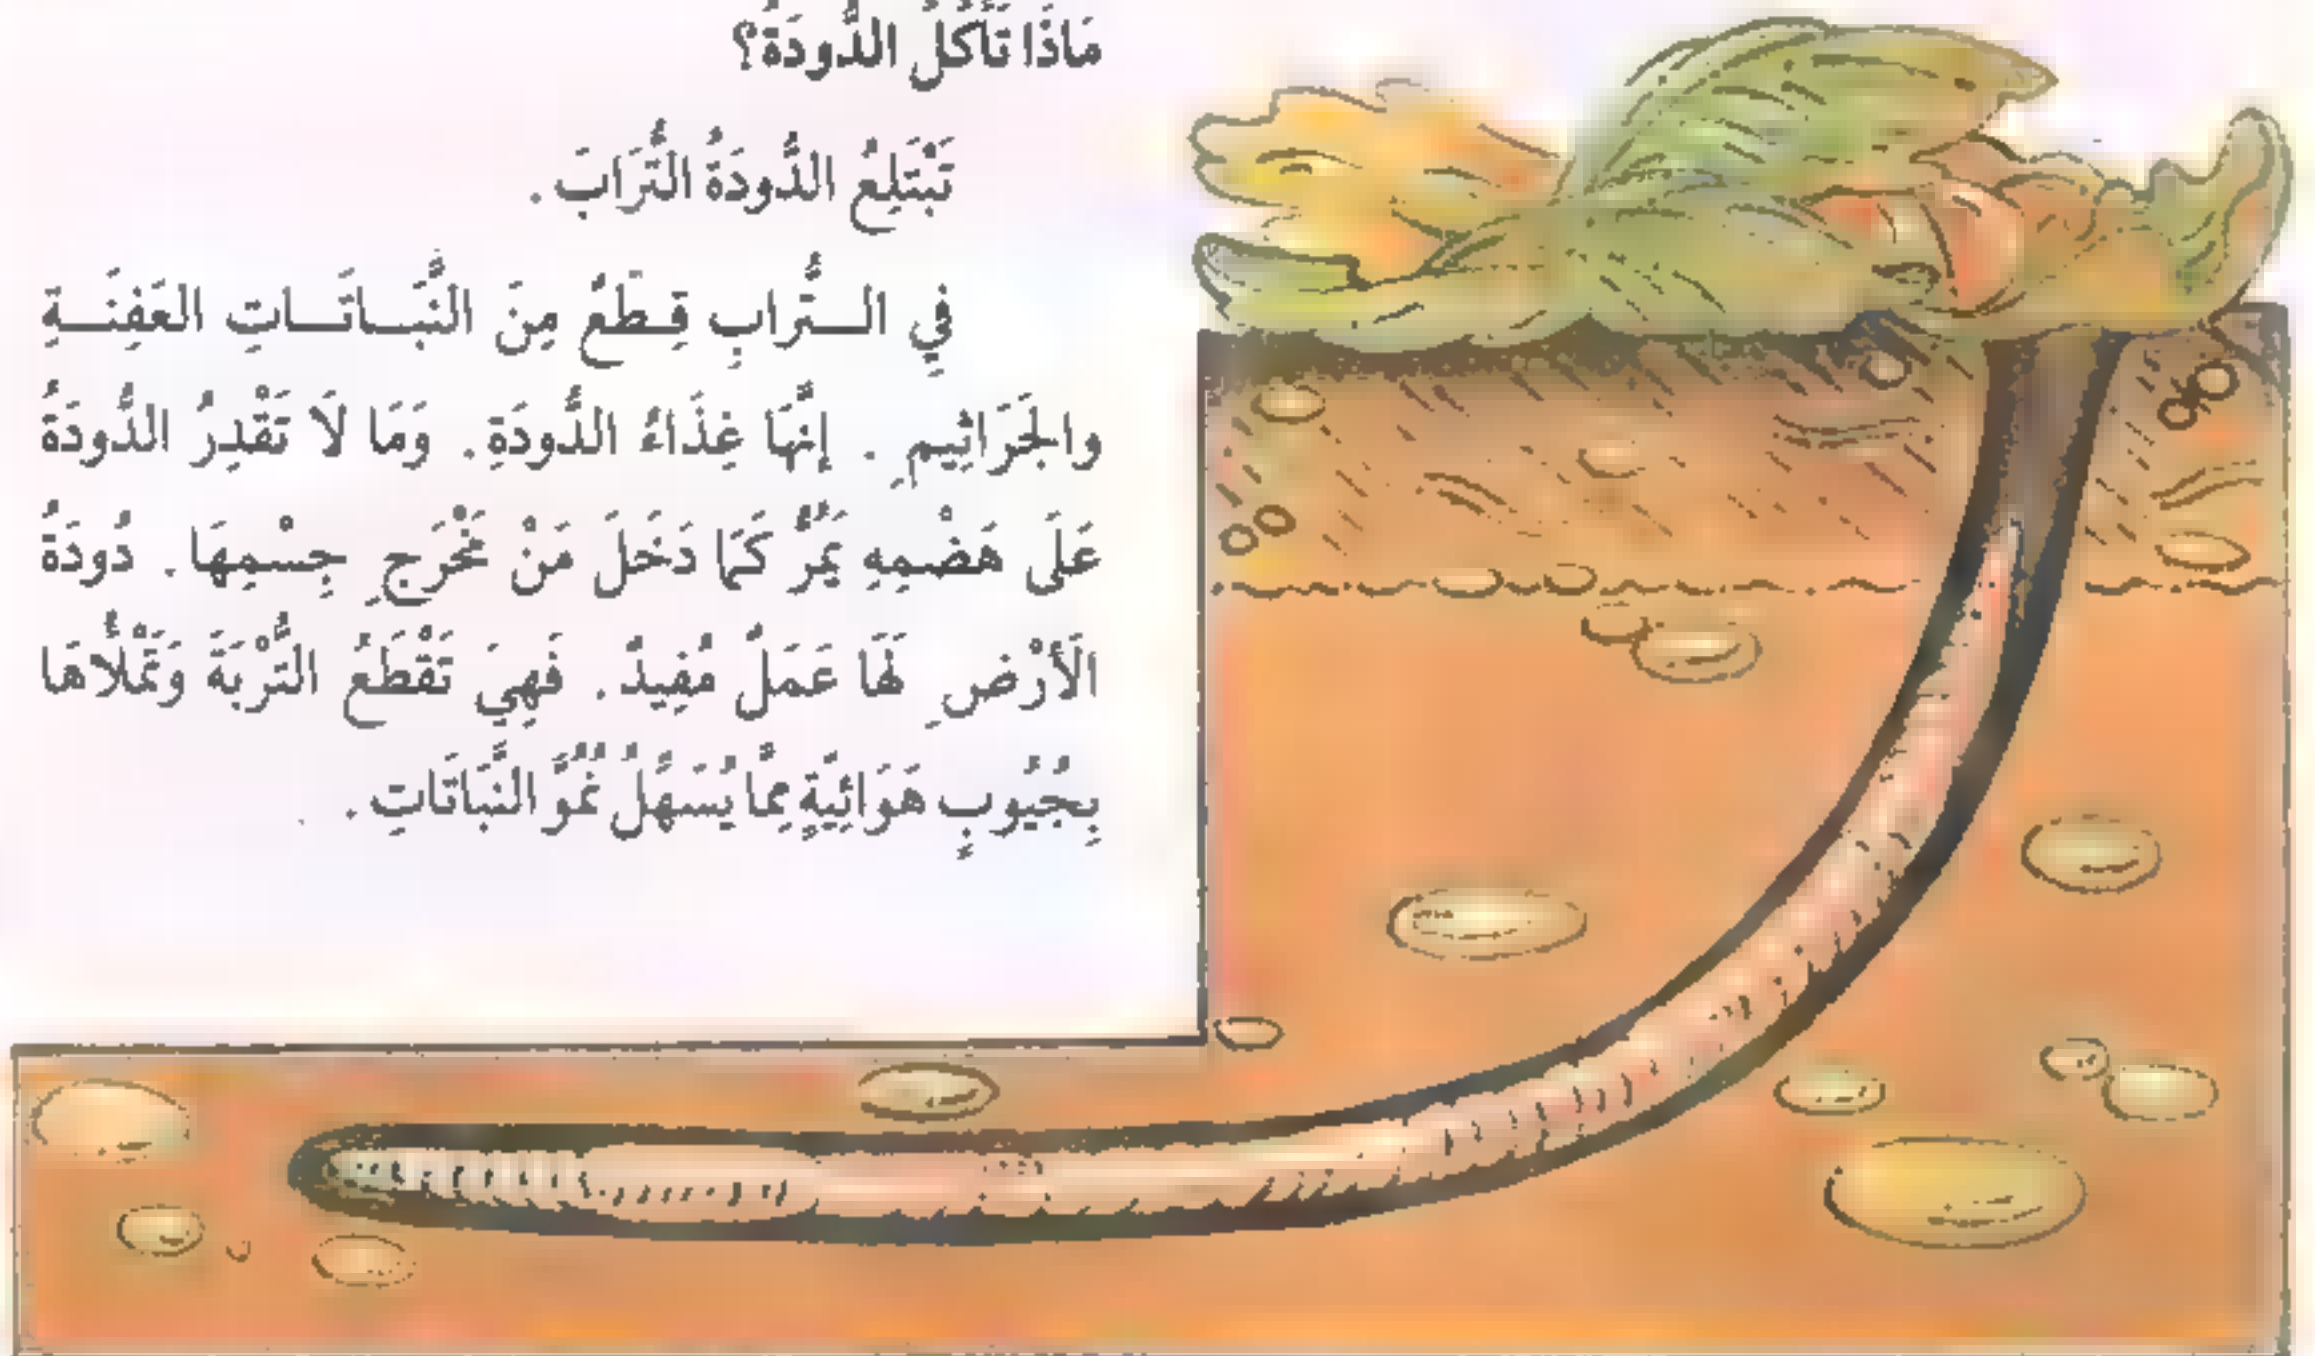 مَاذَا تَأْكُلُ الدُّودَةُ؟
تَبْتَلِعُ الدُّودَةُ التُّرَابَ .
فِي الــتُّرابِ قِـطَعٌ مِنَ النَّبَــاتَــاتِ العَفِنَــةِ
والجَرَاثِيمِ . إِنَّهَا غِذَاءُ الدُّودَةِ . وَمَا لَا تَقْدِرُ الدُّودَةُ
عَلَى هَضْمِهِ يَمُرُّ كَمَا دَخَلَ مَنْ مَخْرَجِ جِسْمِهَا . دُودَةُ
الَأرْضِ لَهَا عَمَلٌ مُفِيدٌ . فَهِيَ تَقْطَعُ التُّرْبَةَ وَتَمْلَأُهَا
بِجُيُوبٍ هَوَائِيَّةٍ مِمَّا يُسَهِّلُ نُمُوَّ النَّبَاتَاتِ .